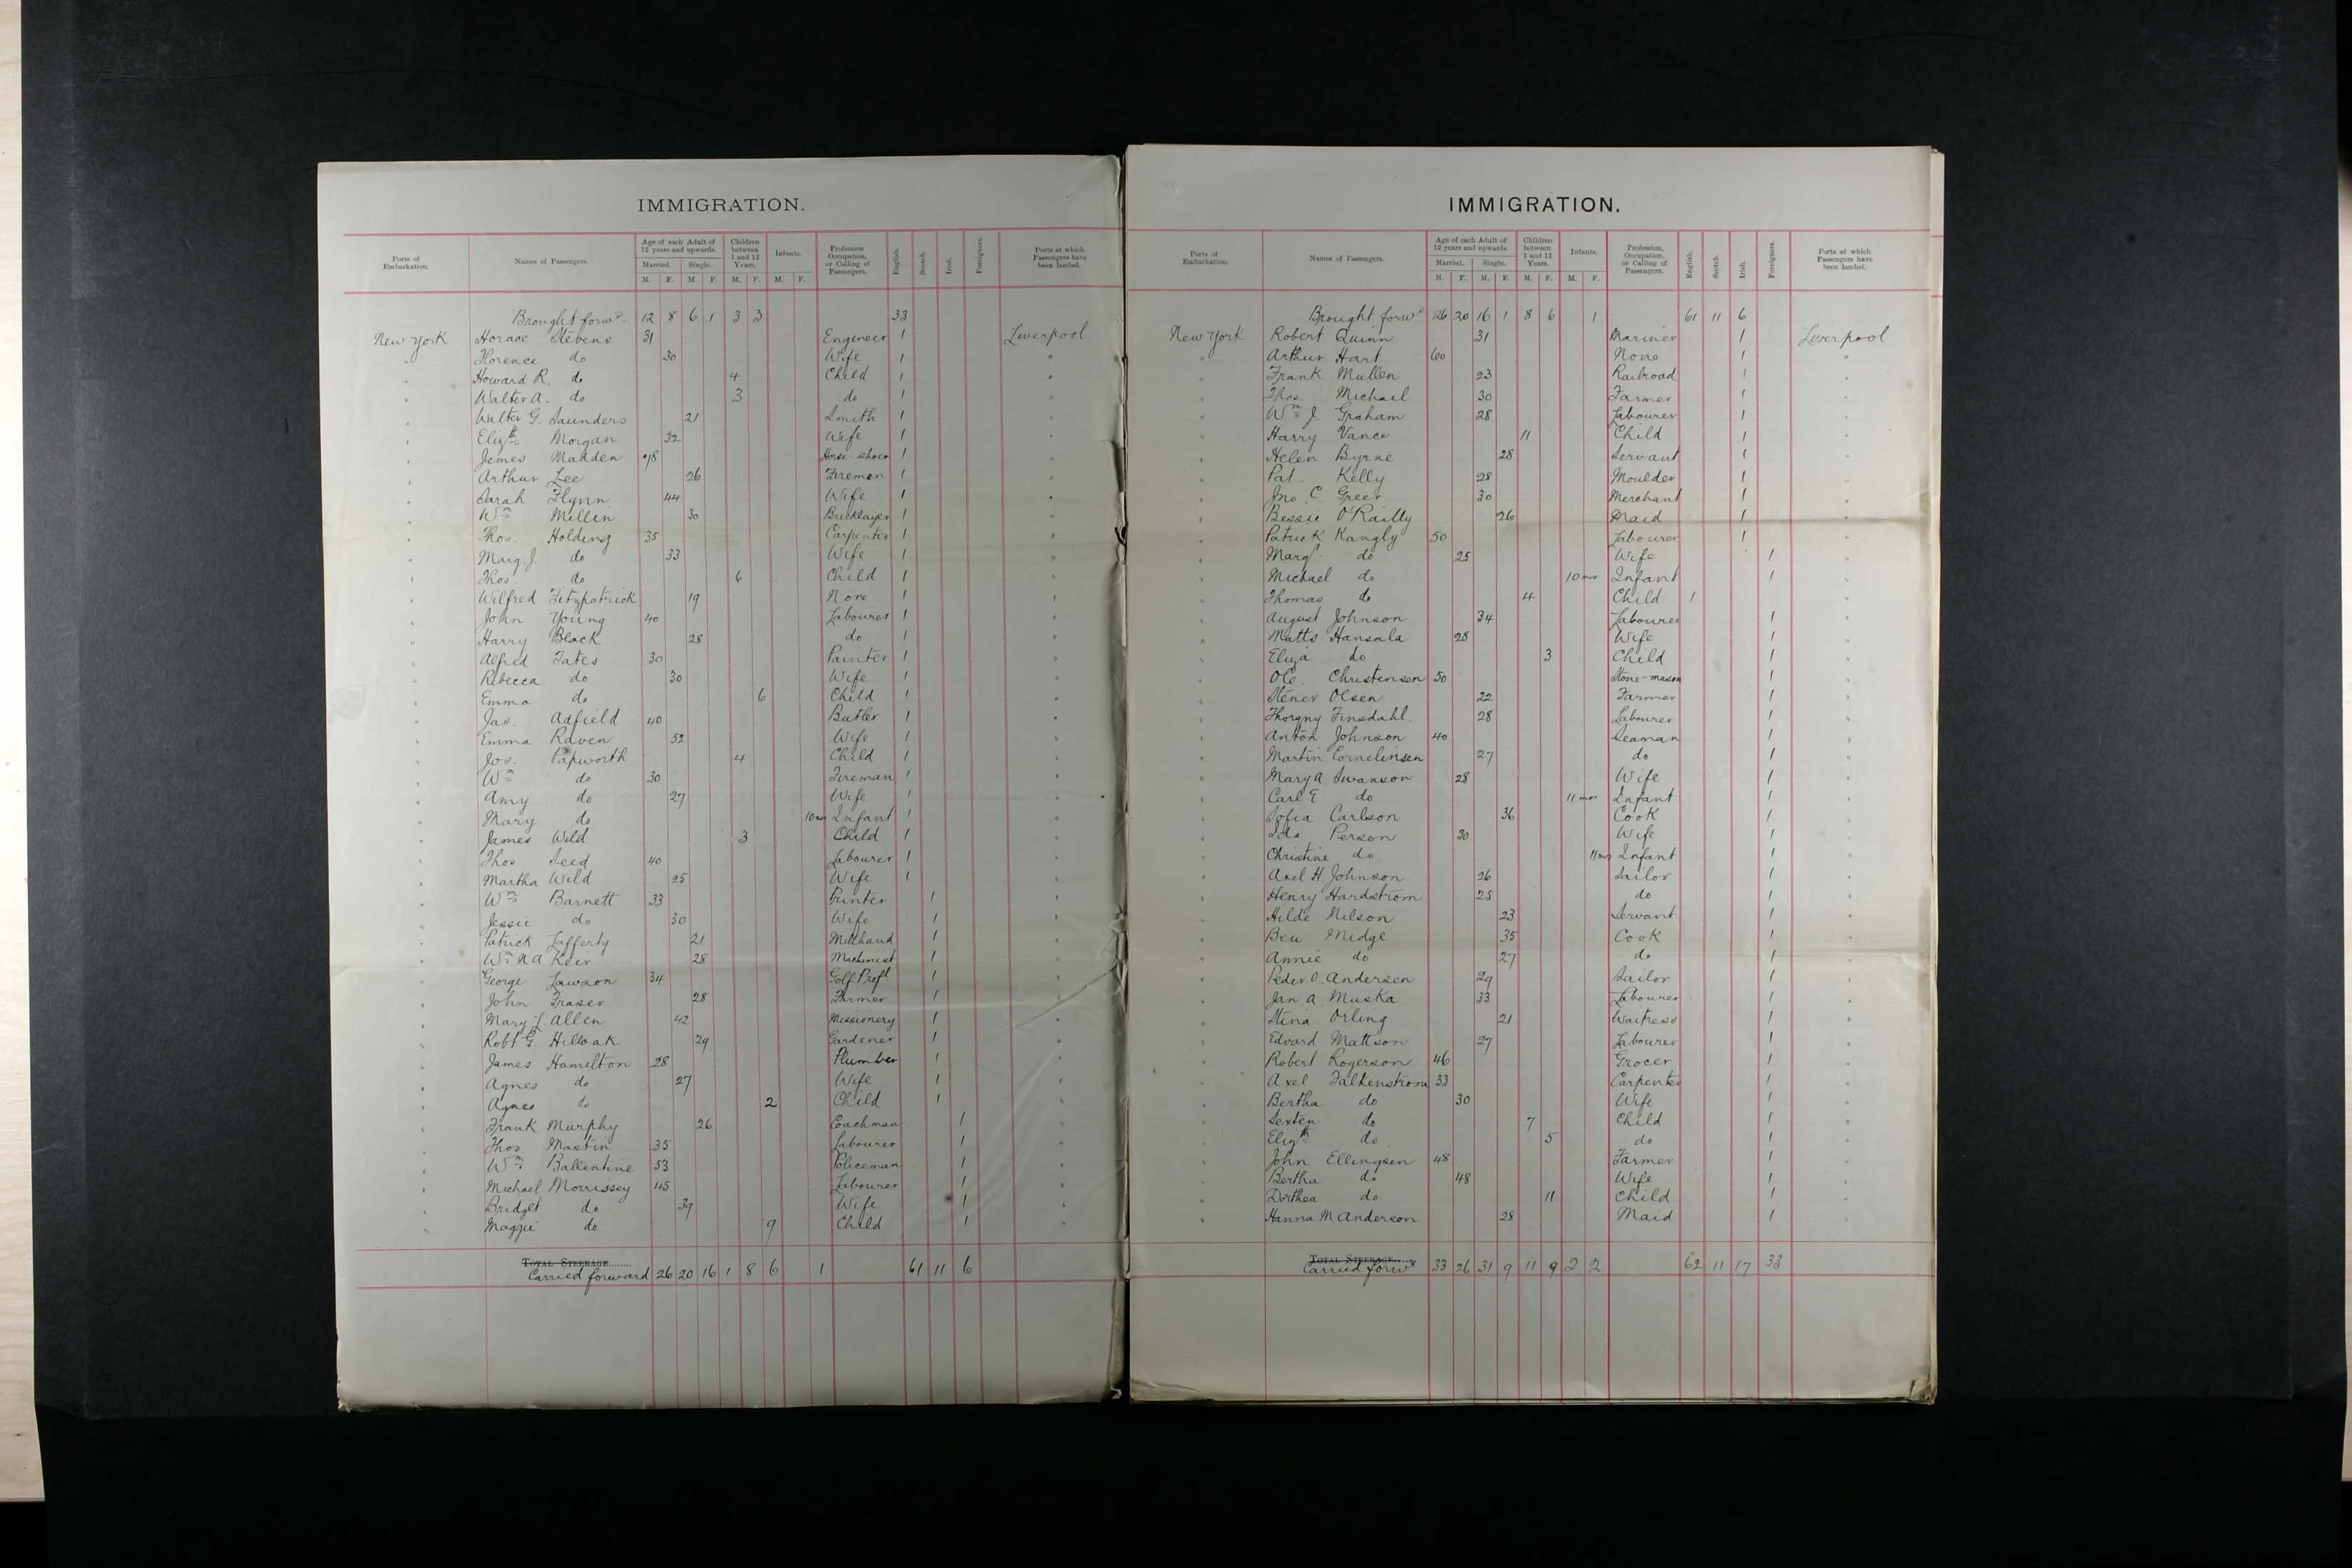 IMMIGRATION.
Ports of Embarkation. Names of Passengers. Age of each Adult of 12 years and upwards. Married. Single. M. F. M. F. Children between 1 and 12 Years. M. F. Infants. M. F. Profession Occupation, or Calling of Passengers. English. Scotch. Irish. Foreigners. Ports at which Passengers have been landed.
Brought forwd. 12 8 6 1 3 3 33
New York Horace Stevens 31 Engineer 1 Liverpool
" Florence do 30 Wife 1 "
" Howard R. do 4 Child 1 "
" Walter A. do 3 do 1 "
" Walter G. Saunders 21 Smith 1 "
" Elizth Morgan 32 Wife 1 "
" James Madden 78 Horse-shoer 1 "
" Arthur Lee 26 Fireman 1 "
" Sarah Flynn 44 Wife 1 "
" Wm Millin 30 Bricklayer 1 "
" Thos. Holding 35 Carpenter 1 "
" Marg. J. do 33 Wife 1 "
" Thos. do 6 Child 1 "
" Wilfred Fitzpatrick 19 None 1 "
" John Young 40 Labourer 1 "
" Harry Black 28 do 1 "
" Alfred Tates 30 Painter 1 "
" Rebecca do 30 Wife 1 "
" Emma do 6 Child 1 "
" Jas. Adfield 40 Butler 1 "
" Emma Raven 52 Wife 1 "
" Jos. Papworth 4 Child 1 "
" Wm do 30 Fireman 1 "
" Amy do 27 Wife 1 "
" Mary do 10 mos Infant 1 "
" James Wild 3 Child 1 "
" Thos Seed 40 Labourer 1 "
" Martha Wild 25 Wife 1 "
" Wm Barnett 33 Printer 1 "
" Jessie do 30 Wife 1 "
" Patrick Lafferty 21 Millhand 1 "
" Wm A. Keir 28 Machinist 1 "
" George Lawson 34 Golf Profl 1 "
" John Fraser 28 Farmer 1 "
" Mary L. Allen 42 Missionery 1 "
" Robt G. Hilloak 29 Gardener 1 "
" James Hamilton 28 Plumber 1 "
" Agnes do 27 Wife 1 "
" Agnes do 2 Child 1 "
" Frank Murphy 26 Coachman 1 "
" Thos. Mastin 35 Labourer 1 "
" Wm Ballentine 53 Policeman 1 "
" Michael Morrissey 45 Labourer 1 "
" Bridget do 39 Wife 1 "
" Maggie do 9 Child 1 "
Total Steerage......
Carried forward 26 20 16 1 8 6 1 61 11 6
IMMIGRATION.
Ports of Embarkation. Names of Passengers. Age of each Adult of 12 years and upwards. Married. Single. M. F. M. F. Children between 1 and 12 Years. M. F. Infants. M. F. Profession, Occupation, or Calling of Passengers. English. Scotch. Irish. Foreigners. Ports at which Passengers have been landed.
Brought forwd 26 20 16 1 8 6 1 61 11 6
New York Robert Quinn 31 Mariner 1 Liverpool
" Arthur Hart 60 None 1 "
" Frank Mullen 23 Railroad 1 "
" Thos Michael 30 Farmer 1 "
" Wm J. Graham 28 Labourer 1 "
" Harry Vance 11 Child 1 "
" Helen Byrne 28 Servant 1 "
" Pat. Kelly 28 Moulder 1 "
" Jno C. Greer 30 Merchant 1 "
" Bessie O'Railly 26 Maid 1 "
" Patrick Kangly 50 Labourer 1 "
" Margt. do 25 Wife 1 "
" Michael do 10 mos Infant 1 "
" Thomas do 4 Child 1 "
" August Johnson 34 Labourer 1 "
" Matts Hansala 28 Wife 1 "
" Eliza do 3 Child 1 "
" Ole Christensen 50 Stone-mason 1 "
" Stener Olsen 22 Farmer 1 "
" Thorgny Finsdahl 28 Labourer 1 "
" Anton Johnson 40 Seaman 1 "
" Martin Corneliusen 27 do 1 "
" Mary A Swanson 28 Wife 1 "
" Carl E do 11 mos Infant 1 "
" Sofia Carlson 36 Cook 1 "
" Ida Person 30 Wife 1 "
" Christine do 11 mos Infant 1 "
" Axel H. Johnson 26 Sailor 1 "
" Henry Hardstrom 25 do 1 "
" Hilde Nilson 23 Servant 1 "
" Bea Midge 35 Cook 1 "
" Annie do 27 do 1 "
" Peder O. Andersen 29 Sailor 1 "
" Jan A. Muska 33 Labourer 1 "
" Stina Orling 21 Waitress 1 "
" Edvard Mattson 27 Labourer 1 "
" Robert Rogerson 46 Grocer 1 "
" Axel Falkenstrom 33 Carpenter 1 "
" Bertha do 30 Wife 1 "
" Sexten do 7 Child 1 "
" Elizth do 5 do 1 "
" John Ellingsen 48 Farmer 1 "
" Bertha do 48 Wife 1 "
" Dorthea do 11 Child 1 "
" Hanna M. Anderson 28 Maid 1 "
Total Steerage......
Carried forwd 33 26 31 9 11 9 2 2 62 11 17 33